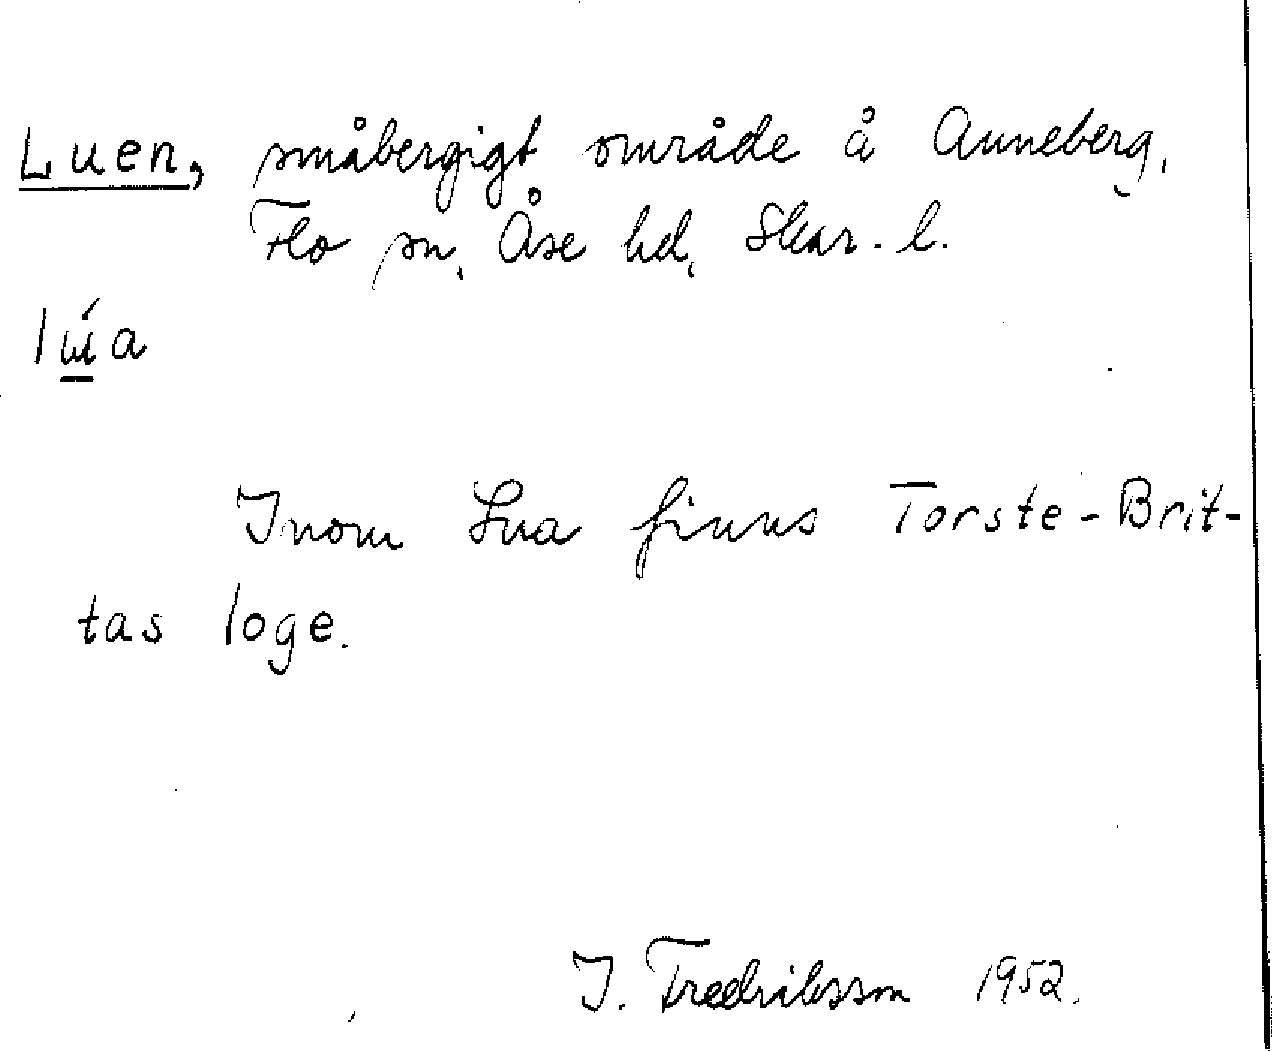 Luen, småbergigt område å Anneberg,
Flo sn, Åse hd, Skar. l.
Inom Lua finns Torste-Brit-
tas loge.
I. Fredriksson 1952.